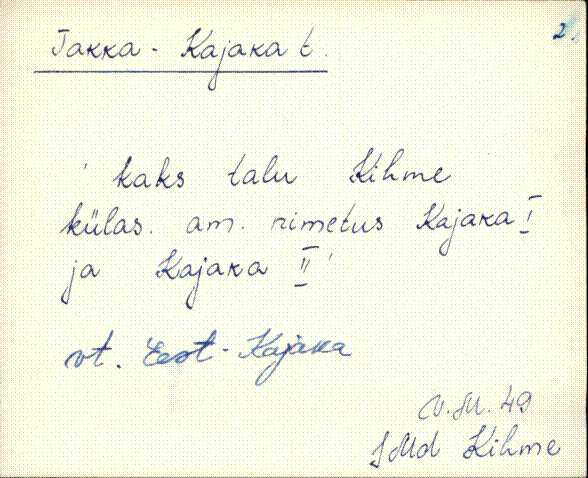 2.
Jakka - Kajaka t.
' kaks talu Kihme
külas. am. nimetus Kajaka I
ja Kajaka II '
vt. Eest-Kajaka
V. M. 49
J Md Kihme